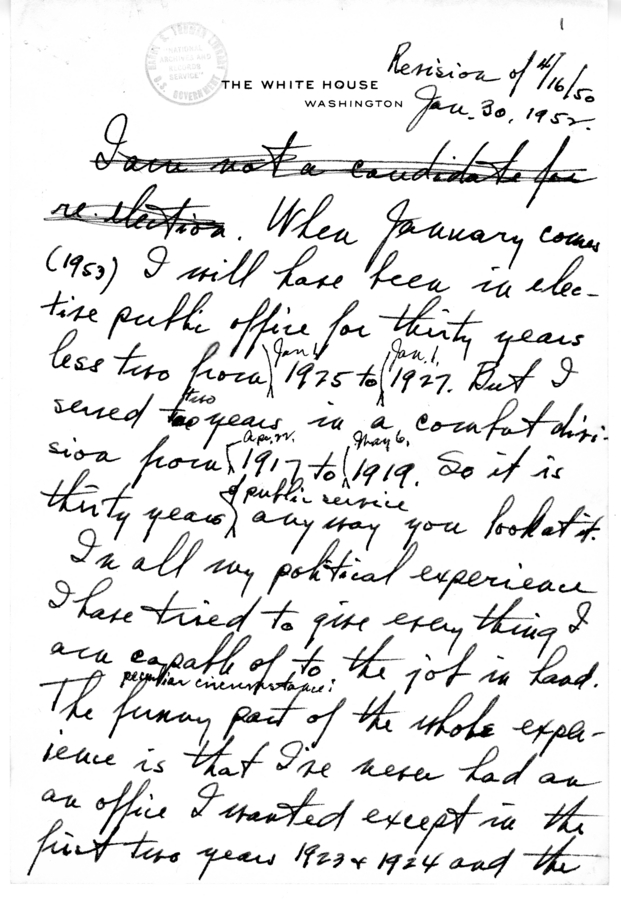 1
HARRY S. TRUMAN LIBRARY
"NATIONAL
ARCHIVES AND
RECORDS
SERVICE"
U.S. GOVERNMENT
THE WHITE HOUSE
WASHINGTON
Revision of 4/16/50
Jan. 30, 1952.
I am not a candidate for
re-election. When January comes
(1953) I will have been in elec-
tive public office for thirty years
less two from Jan. 1, 1925 to Jan. 1, 1927. But I
served two years in a combat divi-
sion from Apr. 1917 to May 6, 1919. So it is
thirty years of public service any way you look at it.
In all my political experience
I have tried to give every thing I
am capable of to the job in hand.
peculiar circumstance:
The funny part of the whole exper-
ience is that I've never had an
an office I wanted except in the
first two years 1923 & 1924 and the